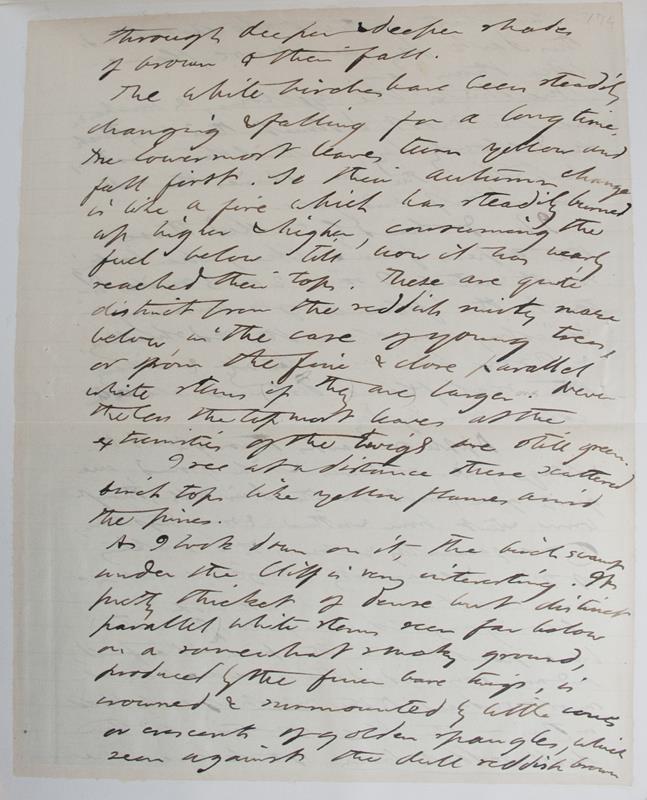 174
through deeper & deeper shades
of brown & then fall.
The white birches have been steadily
changing & falling for a long time,
The lowermost leaves turn yellow and
fall first. So their autumn change
is like a fire which has steadily burned
up higher & higher, consuming the
fuel below, till now it has nearly
reached their tops. These are quite
distinct from the reddish misty maze
below, in the case of young trees,
or from the fine & close parallel
white stems if they are larger. Never
the less the topmost leaves at the
extremities of the twigs are still green.
I see at a distance these scattered
birch tops like yellow flames amid
the pines.
As I look down on it, the birch swamp
under the Cliff is very interesting. Its
pretty thicket of dense but distinct
parallel white stems seen far below
on a somewhat smoky ground,
produced by the finer bare twigs, is
crowned & surmounted by little cones
or crescents of golden spangles, which
seen against the dull reddish brown